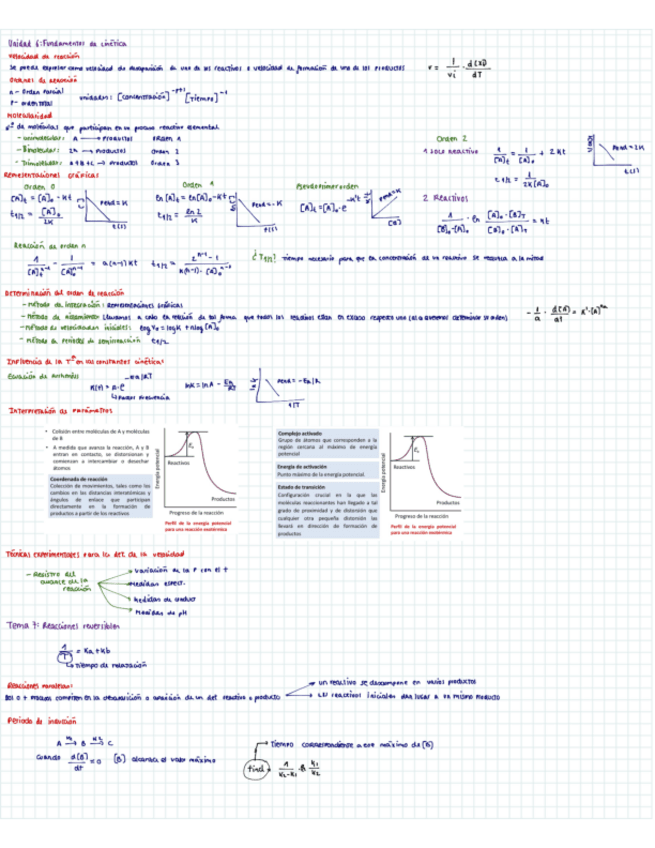 Unidad 6: Fundamentos de cinética
Velocidad de reacción
Se puede expresar como velocidad de desaparición de uno de los reactivos o velocidad de formación de uno de los productos
v = 1/vi · d[Xi]/dT
n - Orden parcial
P - orden total
unidades: [concentración]^-P+1 [Tiempo]^-1
Molecularidad
Nº de moléculas que participan en un proceso reactivo elemental
- unimolecular: A → Productos Orden 1
- Bimolecular: 2A → Productos Orden 2
- Trimolecular: A+B+C → Productos Orden 3
Orden 2
1 solo Reactivo 1/[A]t = 1/[A]o + 2Kt
t1/2 = 1/2K[A]o
Pend = 2K
t(s)
Representaciones gráficas
Orden 0
[A]t = [A]o - Kt
t1/2 = [A]o/2K
Pend = K
t(s)
Orden 1
ln[A]t = ln[A]o - Kt
t1/2 = ln 2/K
Pend = -K
t(s)
Pseudoprimer orden
[A]t = [A]o · e^-K't
Pend = K
[B]
2 Reactivos
1/[B]o-[A]o · ln [A]o·[B]T/[B]o·[A]T = Kt
Reacción de orden n
1/[A]t^n-1 - 1/[A]o^n-1 = a(n-1)Kt
t1/2 = 2^n-1 - 1/K(n-1)·[A]o^n-1
¿T1/2? Tiempo necesario para que la concentración de un reactivo se reduzca a la mitad
Determinación del orden de reacción
- Método de integración: Representaciones gráficas
- Método de aislamiento:
- Método de velocidades iniciales: log Vo = log K + n log [A]o
- Método de periodo de semirreacción t1/2
-1/a · d[A]/dt = K'·[A]^na
Influencia de la Tª en las constantes cinéticas
Ecuación de Arrhenius
K(T) = A·e^-Ea/RT
Factor frecuencia
lnK = lnA - Ea/RT
Pend = -Ea/R
1/T
Interpretación de parámetros
• Colisión entre moléculas de A y moléculas de B
• A medida que avanza la reacción, A y B entran en contacto, se distorsionan y comienzan a intercambiar o desechar átomos
Coordenada de reacción
Colección de movimientos, tales como los cambios en las distancias interatómicas y ángulos de enlace que participan directamente en la formación de productos a partir de los reactivos
Energía potencial
Ea
Reactivos
Productos
Progreso de la reacción
Perfil de la energía potencial para una reacción exotérmica
Complejo activado
Grupo de átomos que corresponden a la región cercana al máximo de energía potencial
Energía de activación
Punto máximo de la energía potencial.
Estado de transición
Configuración crucial en la que las moléculas reaccionantes han llegado a tal grado de proximidad y de distorsión que cualquier otra pequeña distorsión las llevará en dirección de formación de productos
Energía potencial
Ea
Reactivos
Productos
Progreso de la reacción
Perfil de la energía potencial para una reacción exotérmica
Técnicas experimentales para la det. de la velocidad
- Registro del avance de la reacción
Variación de la P con el t
Medidas espect.
Medidas de conduct
Medidas de pH
Tema 7: Reacciones reversibles
1/T = Ka + Kb
Tiempo de relajación
Reacciones paralelas:
Dos o + procesos compiten en la desaparición o aparición de un det reactivo o producto
un reactivo se descompone en varios productos
Los reactivos iniciales dan lugar a un mismo producto
Periodo de inducción
A K1→ B K2→ C
Cuando d[B]/dt = 0 [B] alcanza el valor máximo
Tiempo correspondiente a ese máximo de [B]
tind = 1/K2-K1 · ln K1/K2